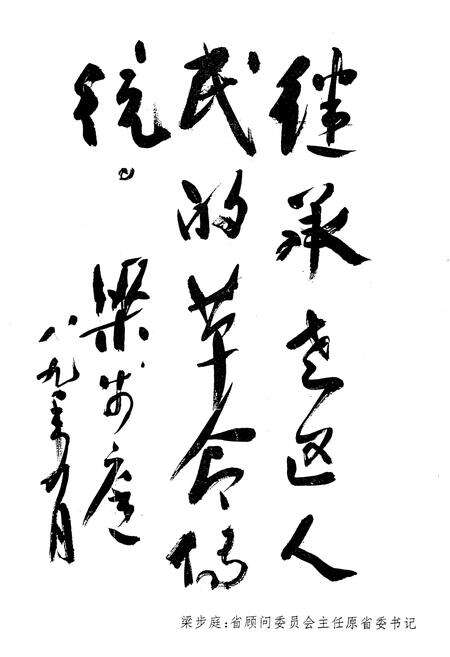 继承老区人
民的革命传
统。
梁步庭
八九年九月
梁步庭:省顾问委员会主任原省委书记